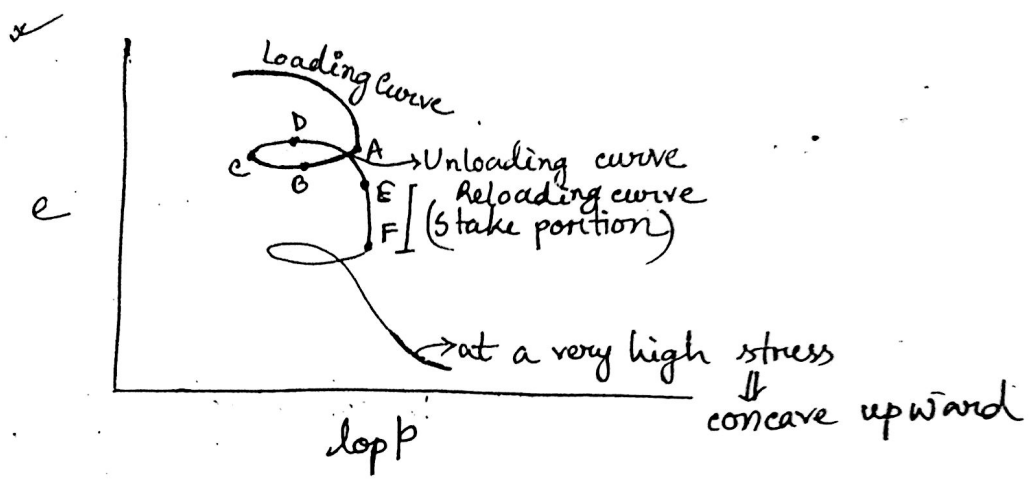 Loading curve
D
A
C
B
→Unloading curve
E
Reloading curve
F
(Stake portion)
e
→at a very high stress
⇓
concave upward
lop p